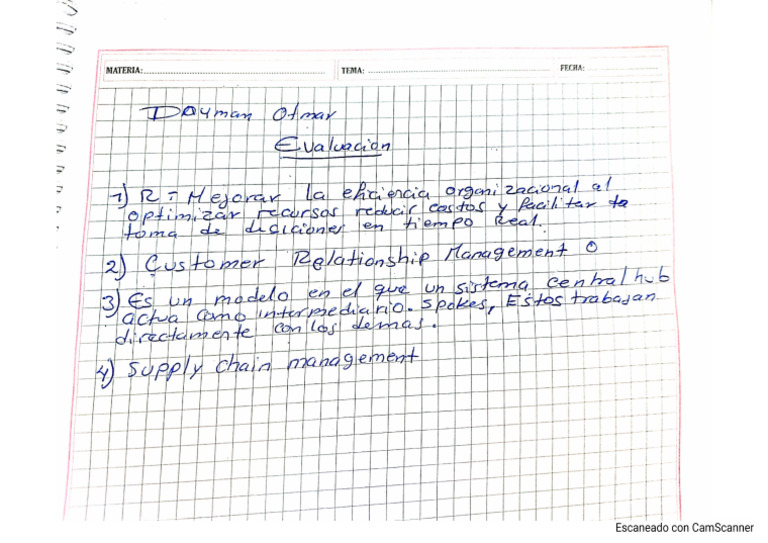 MATERIA: TEMA: FECHA:
Dayman Otmar
Evaluacion
1) R = Mejorar la eficiencia organizacional al
optimizar recursos reducir costos y facilitar la
toma de disiciones en tiempo Real.
2) Customer Relationship Management o
3) Es un modelo en el que un sistema central hub
actua como intermediario. Spokes, Estos trabajan
directamente con los demas.
4) Supply chain management
Escaneado con CamScanner